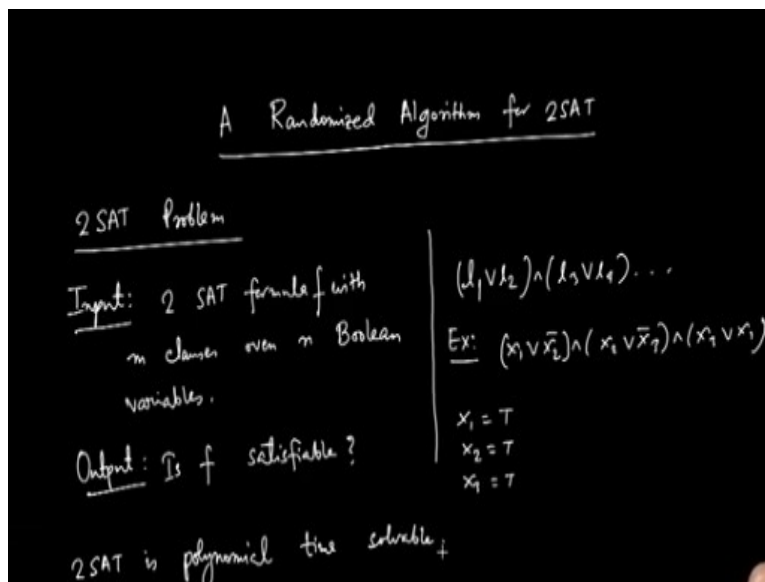 A Randomized Algorithm for 2SAT
2 SAT Problem
Input: 2 SAT formula f with
m clauses over n Boolean
variables.
Output: Is f satisfiable?
2SAT is polynomial time solvable
(l₁ ∨ l₂) ∧ (l₃ ∨ l₄) ....
Ex: (x₁ ∨ x̄₂) ∧ (x₂ ∨ x̄₇) ∧ (x₇ ∨ x₁)
x₁ = T
x₂ = T
x₇ = T